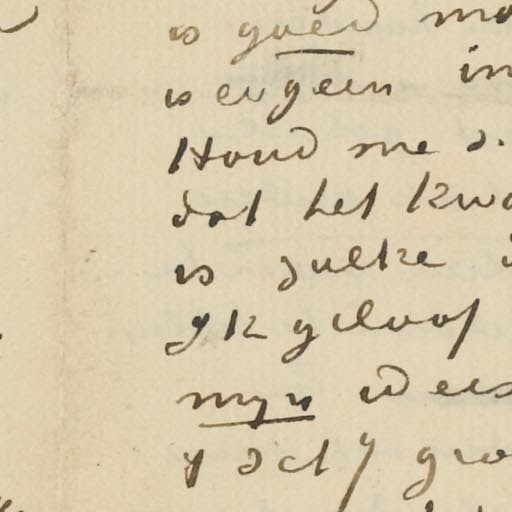 is goed
is er geen in
Houd me
dat het kwa
is zulke
Ik geloof
myn idees
dat gro